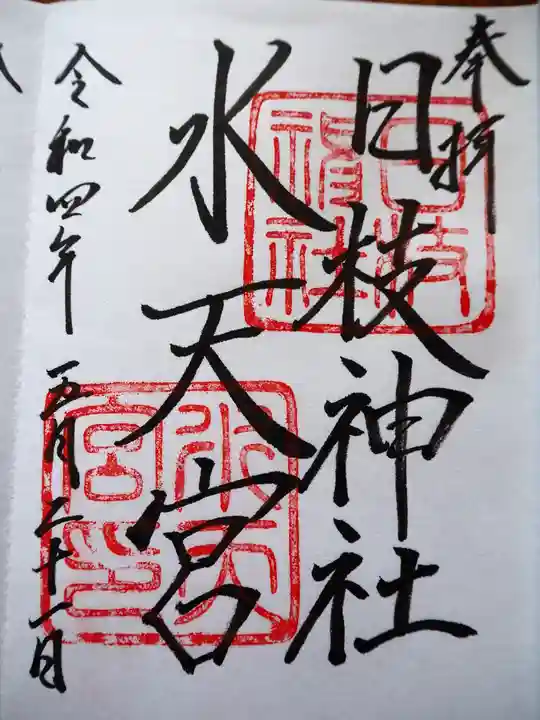 奉拝
日枝神社
水天宮
令和四年 五月二十一日
日枝神社
水天宮印